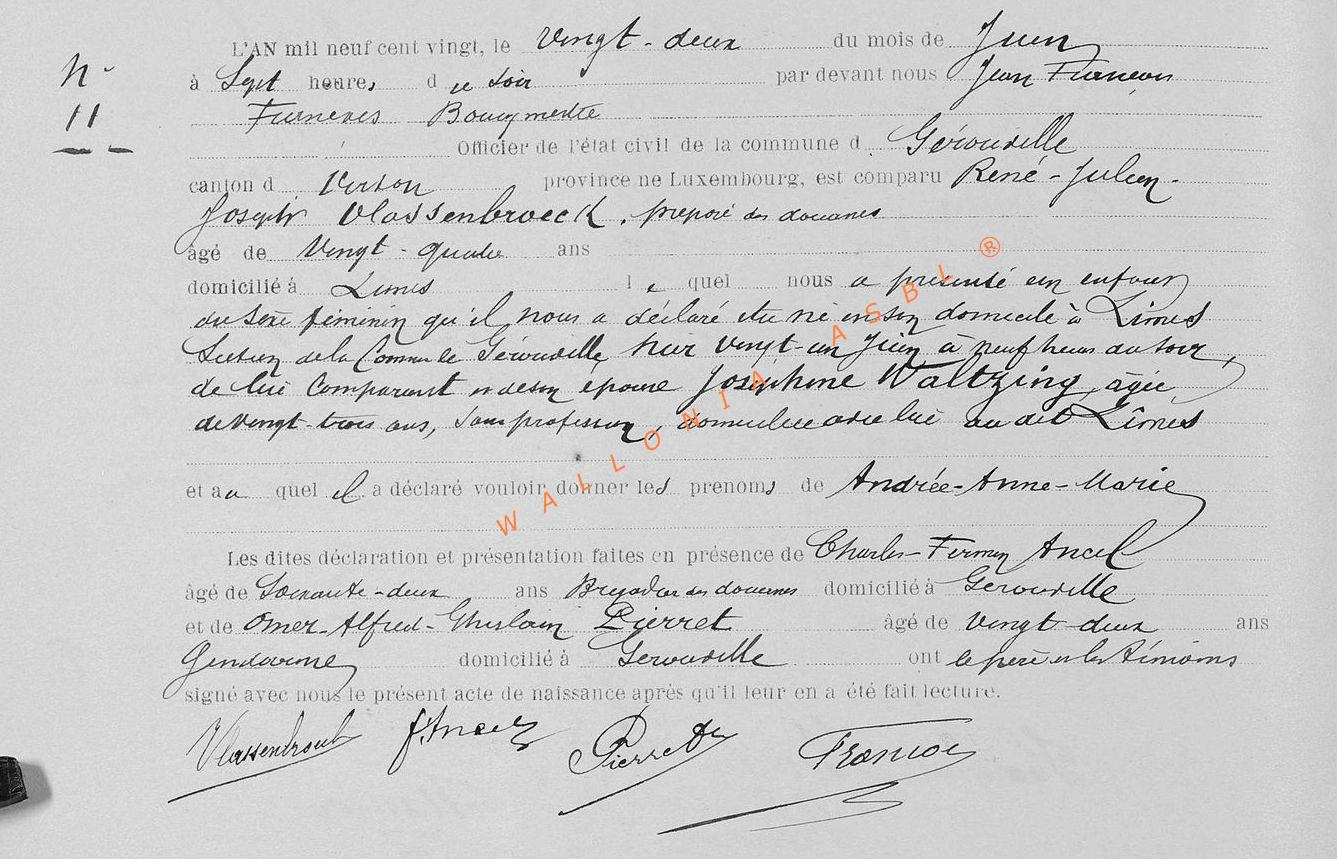 N°
11
L'AN mil neuf cent vingt, le vingt-deux du mois de Juin
à Sept heures du soir par devant nous Jean François
Bourgmestre
Officier de l'état civil de la commune d Gérouville
canton d Virton province de Luxembourg, est comparu René-Julien-
Joseph Vlassenbroeck, préposé des douanes
âgé de vingt-quatre ans
domicilié à Limes lequel nous a présenté un enfant
du sexe féminin qu'il nous a déclaré être né en son domicile à Limes
Section de la Commune Gérouville hier vingt-un Juin à neuf heures du soir,
de lui comparant et de son épouse Joséphine Waltzing, âgée
de vingt-trois ans, sans profession, domiciliée avec lui au dit Limes
et au quel il a déclaré vouloir donner les prenoms de Andrée-Anne-Marie
Les dites déclaration et présentation faites en présence de Charles-Firmin Ancel
âgé de Soixante-deux ans Brigadier des douanes domicilié à Gérouville
et de Omer-Alfred-Ghislain Pierret âgé de vingt-deux ans
Gendarme domicilié à Gérouville ont le père et les témoins
signé avec nous le présent acte de naissance après qu'il leur en a été fait lecture.
Vlassenbroeck F. Ancel Pierret François
WALLONIA ASBL ®